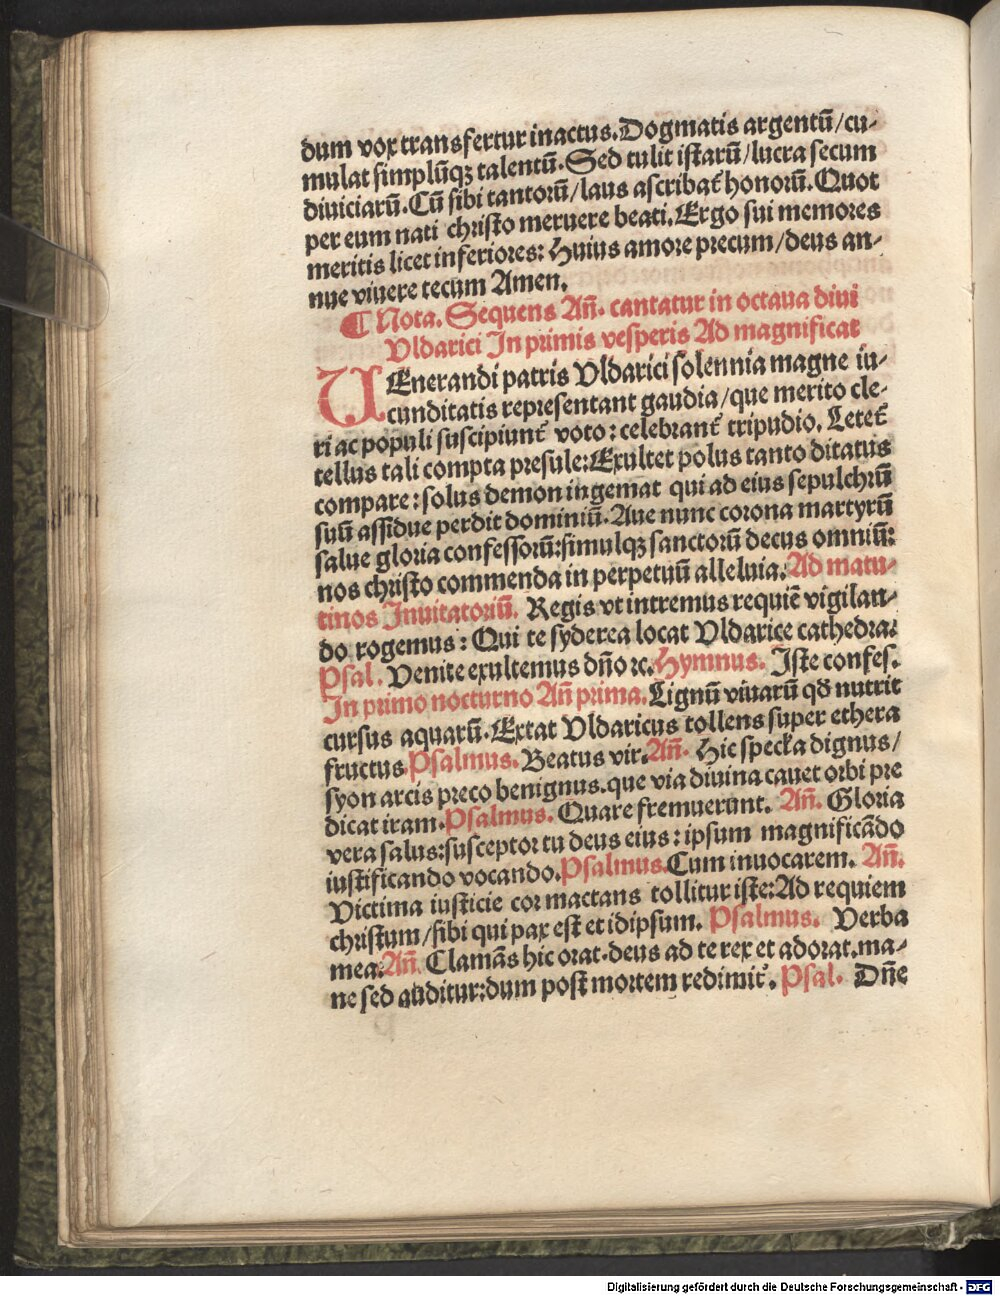 dum vox transfertur in actus. Dogmatis argentū/cu-
mulat simplūqꝫ talentū. Sed tulit istarū/lucra secum
diuiciarū. Cū sibi tantorū/laus ascribat᷑ honorū. Quot
per eum nati christo meruere beati. Ergo sui memores
meritis licet inferiores: Huius amore precum/deus an-
nue viuere tecum Amen.
¶ Nota. Sequens Añ. cantatur in octaua diui
Vldarici In primis vesperis Ad magnificat
VEnerandi patris Vldarici solennia magne iu-
cunditatis representant gaudia/que merito cle-
ri ac populi suscipiunt᷑ voto: celebrant᷑ tripudio. Letet᷑
tellus tali compta presule: Exultet polus tanto ditatus
compare: solus demon ingemat qui ad eius sepulchrū
suū assidue perdit dominiū. Aue nunc corona martyrū
salue gloria confessorū: simulqꝫ sanctorū decus omniū:
nos christo commenda in perpetuū alleluia. Ad matu-
tinos Inuitatoriū. Regis vt intremus requiē vigilan-
do rogemus: Qui te syderea locat Vldarice cathedra.
Psal. Venite exultemus dño ⁊c. Hymnus. Iste confes.
In primo nocturno Añ prima. Lignū viuarū qđ nutrit
cursus aquarū. Extat Vldaricus tollens super ethera
fructus Psalmus. Beatus vir. Añ. Hic specka dignus/
syon arcis preco benignus. que via diuina cauet orbi pre
dicat iram. Psalmus. Quare fremuerunt. Añ. Gloria
vera salus: susceptor tu deus eius: ipsum magnificādo
iustificando vocando. Psalmus. Cum inuocarem. Añ.
Victima iusticie cor mactans tollitur iste: Ad requiem
christum/sibi qui pax est et idipsum. Psalmus. Verba
mea. Añ. Clamās hic orat. deus ad te rex et adorat. ma-
ne sed auditur: dum post mortem redimit᷑. Psal. Dñe
Digitalisierung gefördert durch die Deutsche Forschungsgemeinschaft - DFG